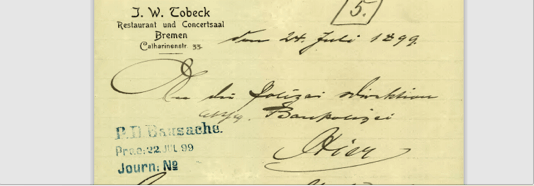 5.
J. W. Tobeck
Restaurant und Concertsaal
Bremen
Catharinenstr. 33.
den 24. Juli 1899.
An die Polizei Direktion
Baupolizei
Hier
P. D. Bausache.
Praes: 22 JUL 99
Journ: №